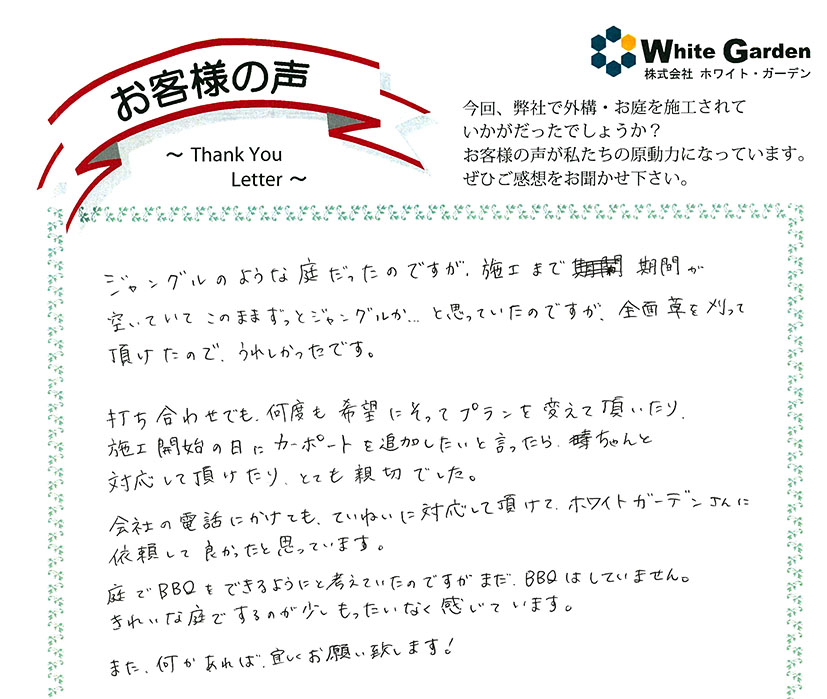 お客様の声
~ Thank You
Letter ~
White Garden
株式会社 ホワイト・ガーデン
今回、弊社で外構・お庭を施工されて
いかがだったでしょうか？
お客様の声が私たちの原動力になっています。
ぜひご感想をお聞かせ下さい。
ジャングルのような庭だったのですが、施工まで 期間が
空いていて このままずっとジャングルか…と思っていたのですが、全面草を刈って
頂けたので、うれしかったです。
打ち合わせでも、何度も希望にそってプランを変えて頂いたり、
施工開始の日にカーポートを追加したいと言ったら、ちゃんと
対応して頂けたり、とても親切でした。
会社の電話にかけても、ていねいに対応して頂けて、ホワイトガーデンさんに
依頼して良かったと思っています。
庭でBBQをできるようにと考えていたのですがまだ、BBQはしていません。
きれいな庭でするのが少しもったいなく感じています。
また、何かあれば、宜しくお願い致します！